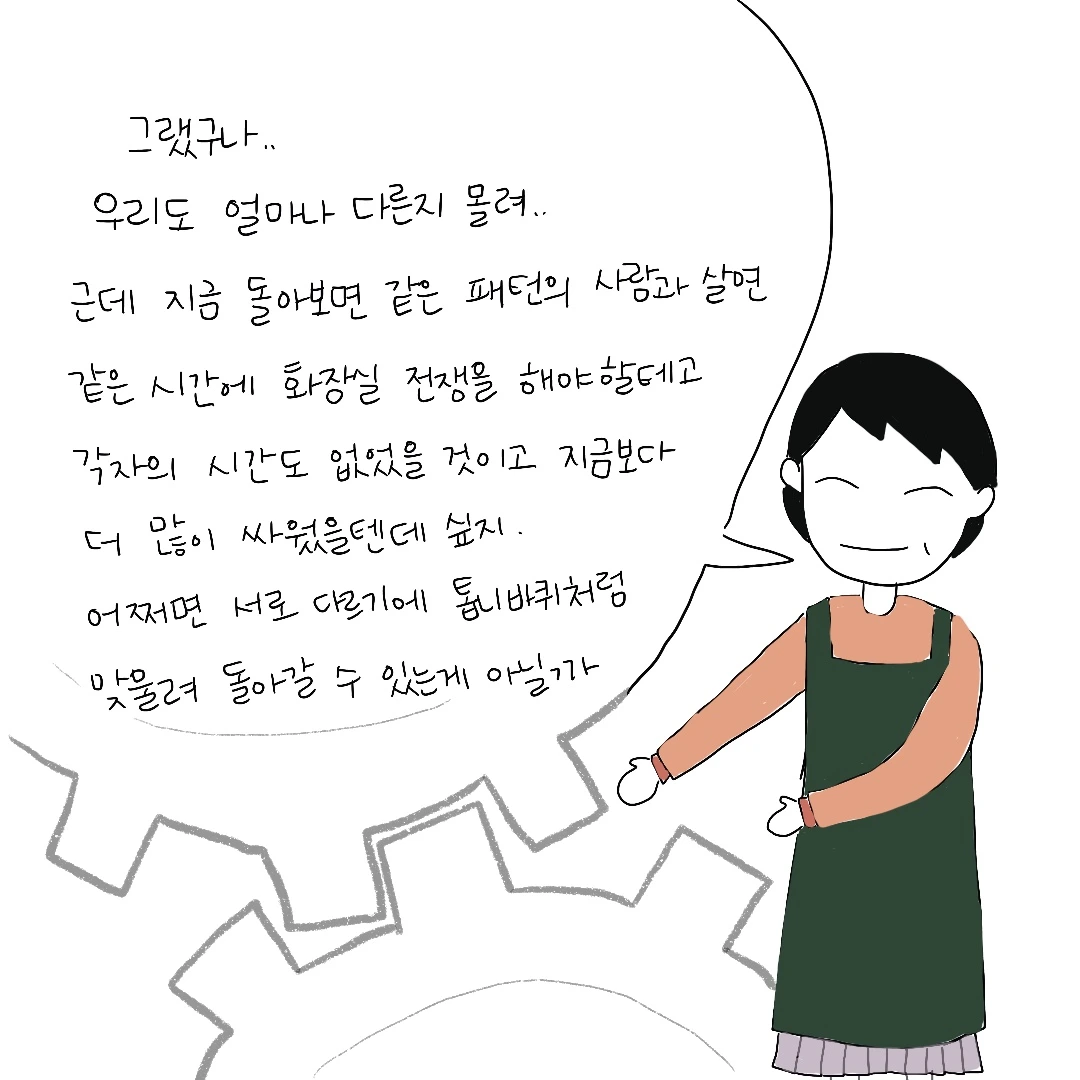 그랬구나..
우리도 얼마나 다른지 몰려..
근데 지금 돌아보면 같은 패턴의 사람과 살면
같은 시간에 화장실 전쟁을 해야할테고
각자의 시간도 없었을 것이고 지금보다
더 많이 싸웠을텐데 싶지.
어쩌면 서로 다르기에 톱니바퀴처럼
맞물려 돌아갈 수 있는게 아닐까